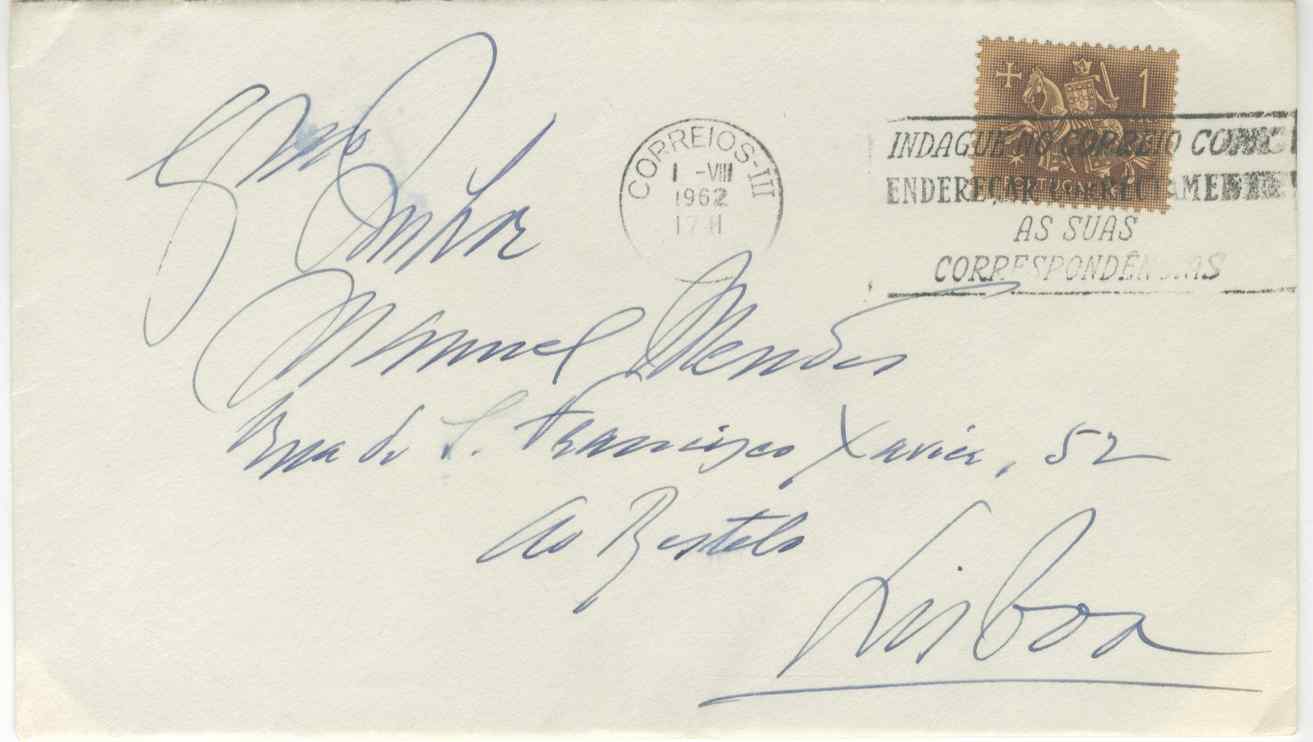 Exmo
Senhor
Manuel Mendes
Rua de S. Francisco Xavier, 52
Ao Restelo
Lisboa
CORREIOS-III
1 -VIII
1962
17 H
1
INDAGUE NO CORREIO COMO
ENDEREÇAR CORRECTAMENTE
AS SUAS
CORRESPONDÊNCIAS